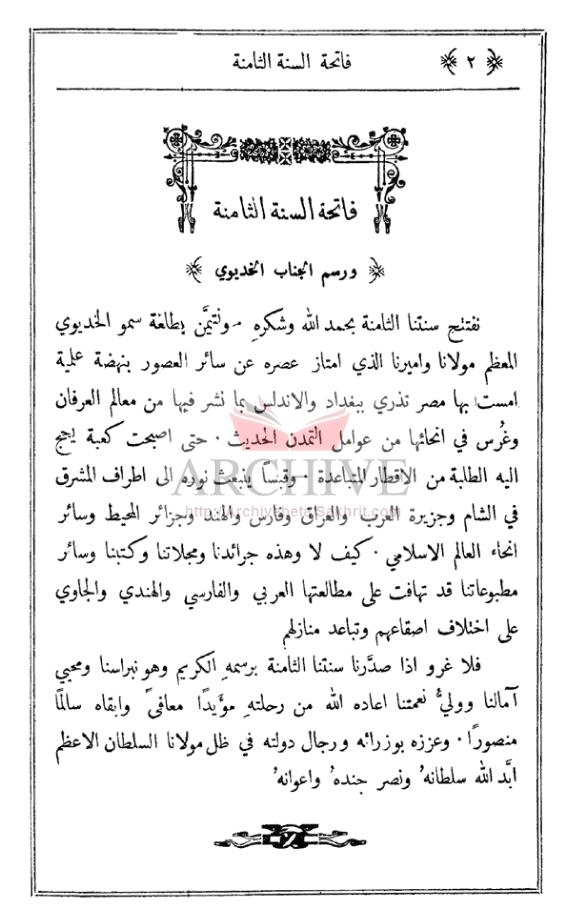 فاتحة السنة الثامنة
﴿ ٢ ﴾
فاتحة السنة الثامنة
﴿ ورسم الجناب الخديوي ﴾
نفتتح سنتنا الثامنة بحمد الله وشكرهِ - ونتيمَّن بطلعة سمو الخديوي
المعظم مولانا واميرنا الذي امتاز عصره عن سائر العصور بنهضة علمية
امست بها مصر تذري ببغداد والاندلس بما نشر فيها من معالم العرفان
وغُرس في انحائها من عوامل التمدن الحديث · حتى اصبحت كعبة يحج
اليه الطلبة من الاقطار المتباعدة · وقبساً ينبعث نوره الى اطراف المشرق
في الشام وجزيرة العرب والعراق وفارس والهند وجزائر المحيط وسائر
انحاء العالم الاسلامي · كيف لا وهذه جرائدنا ومجلاتنا وكتبنا وسائر
مطبوعاتنا قد تهافت على مطالعتها العربي والفارسي والهندي والجاوي
على اختلاف اصقاعهم وتباعد منازلهم
فلا غرو اذا صدَّرنا سنتنا الثامنة برسمهِ الكريم وهو نبراسنا ومحيي
آمالنا ووليُّ نعمتنا اعاده الله من رحلتهِ مؤَيدًا معافىً وابقاه سالمًا
منصورًا · وعززه بوزرائه ورجال دولته في ظل مولانا السلطان الاعظم
ابَّد الله سلطانهُ ونصر جندهُ واعوانهُ
ARCHIVE
http://Archivebeta.Sakhrit.com